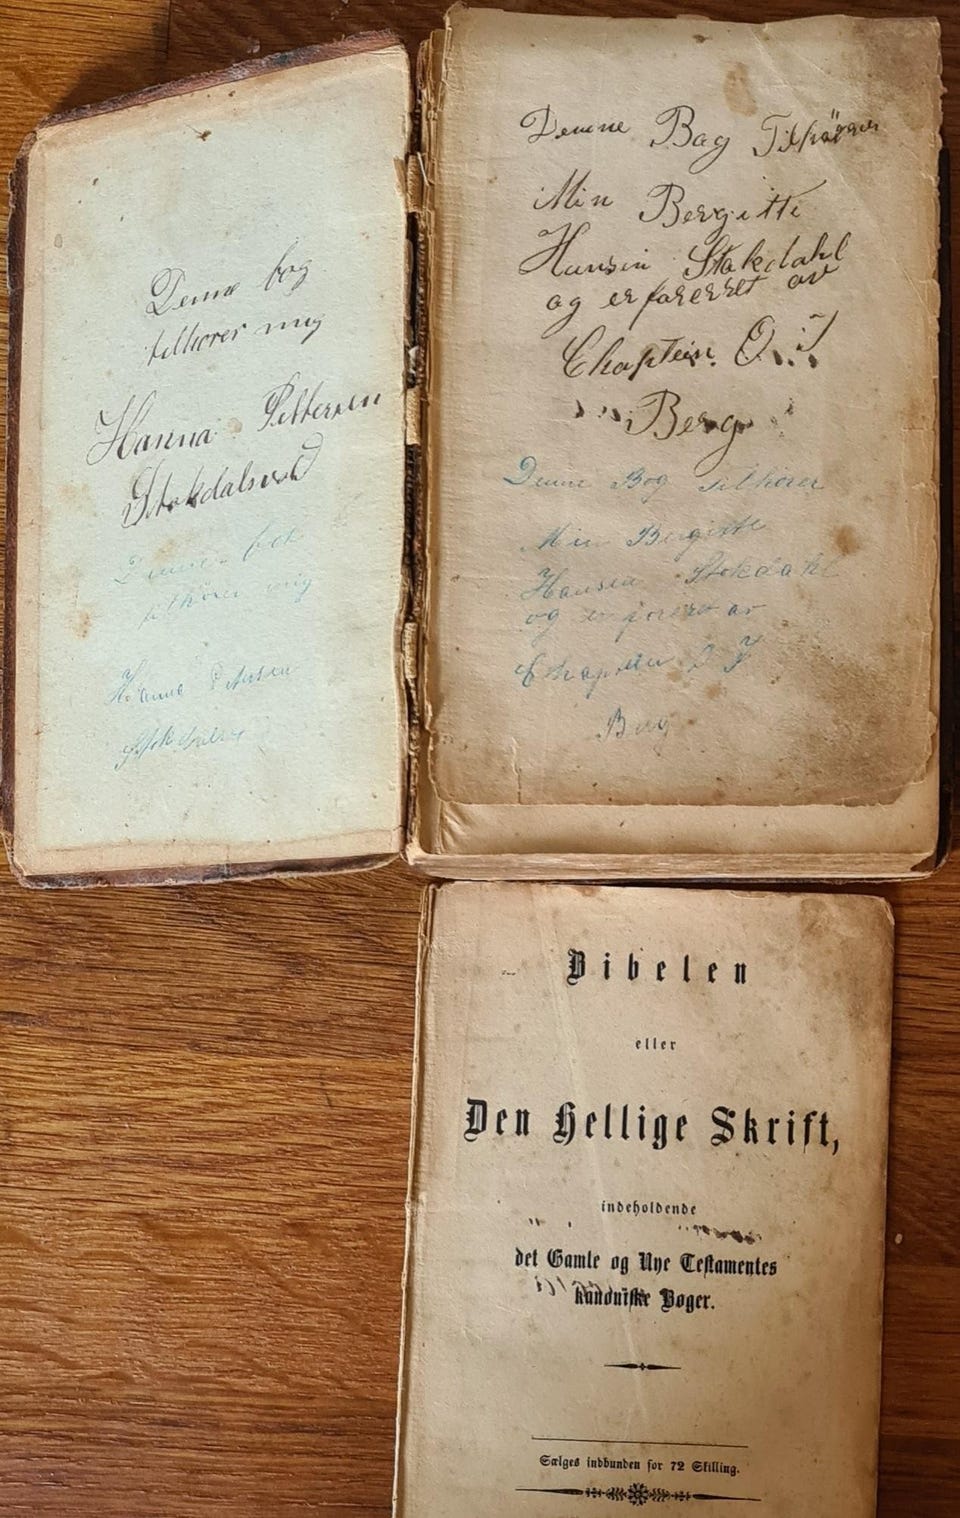 Denne bog
tilhører mig
Hanna Pettersen
Stokdalsvold
Denne bok
tilhører mig
Hanna Petersen
Denne Bag Tilhører
Min Bergitte
Hansen Stokdahl
og er forerret av
Chaptein O. J
Berg
Denne Bog tilhører
Min Bergitte
Hansen Stokdahl
og er foreret av
Chaptein O J
Berg
Bibelen
eller
Den Hellige Skrift,
indeholdende
det Gamle og Nye Testamentes
kanoniske Bøger.
Sælges indbunden for 72 Skilling.